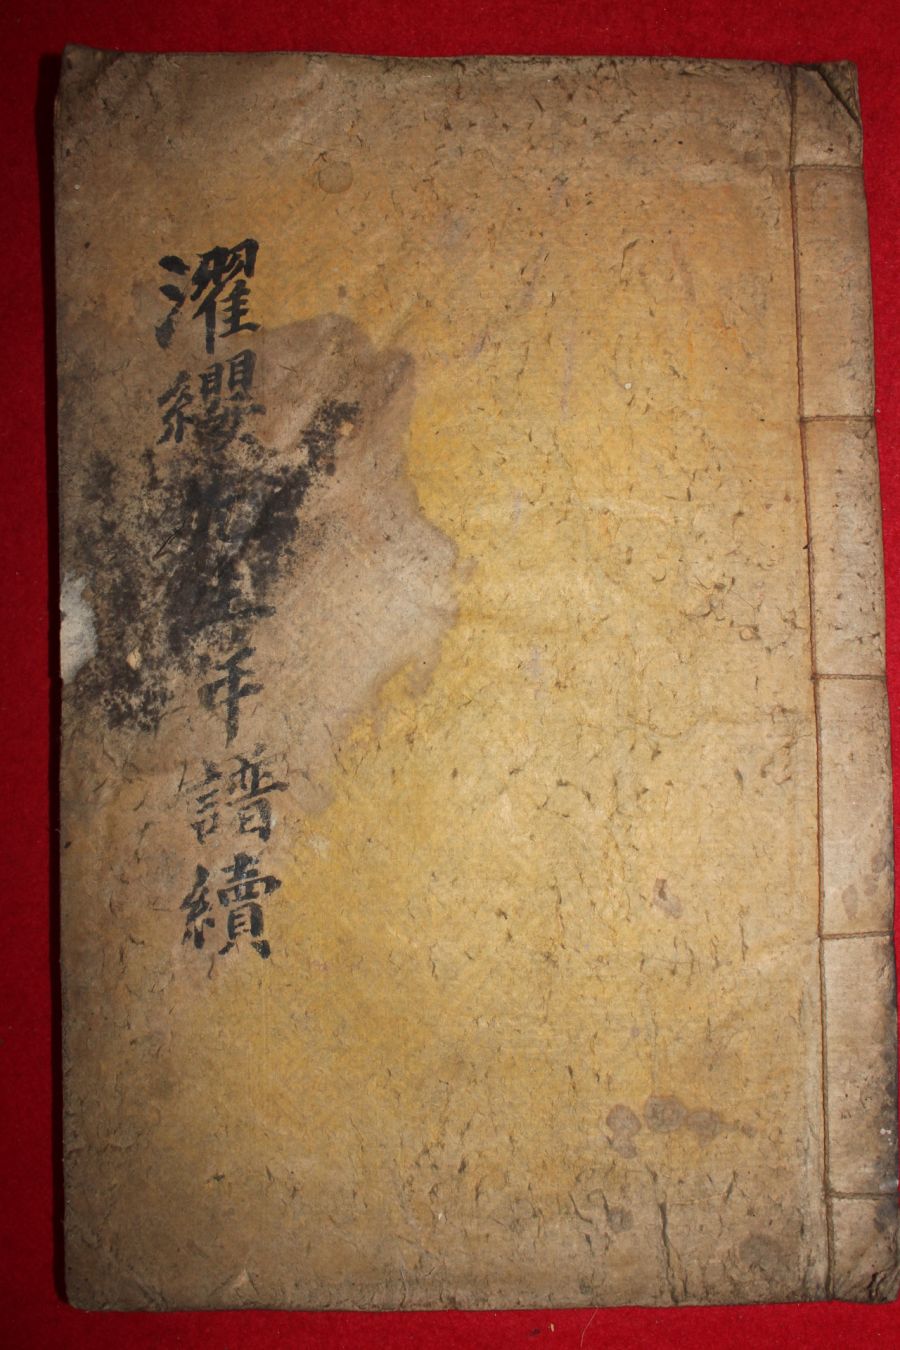 濯纓先生年譜續